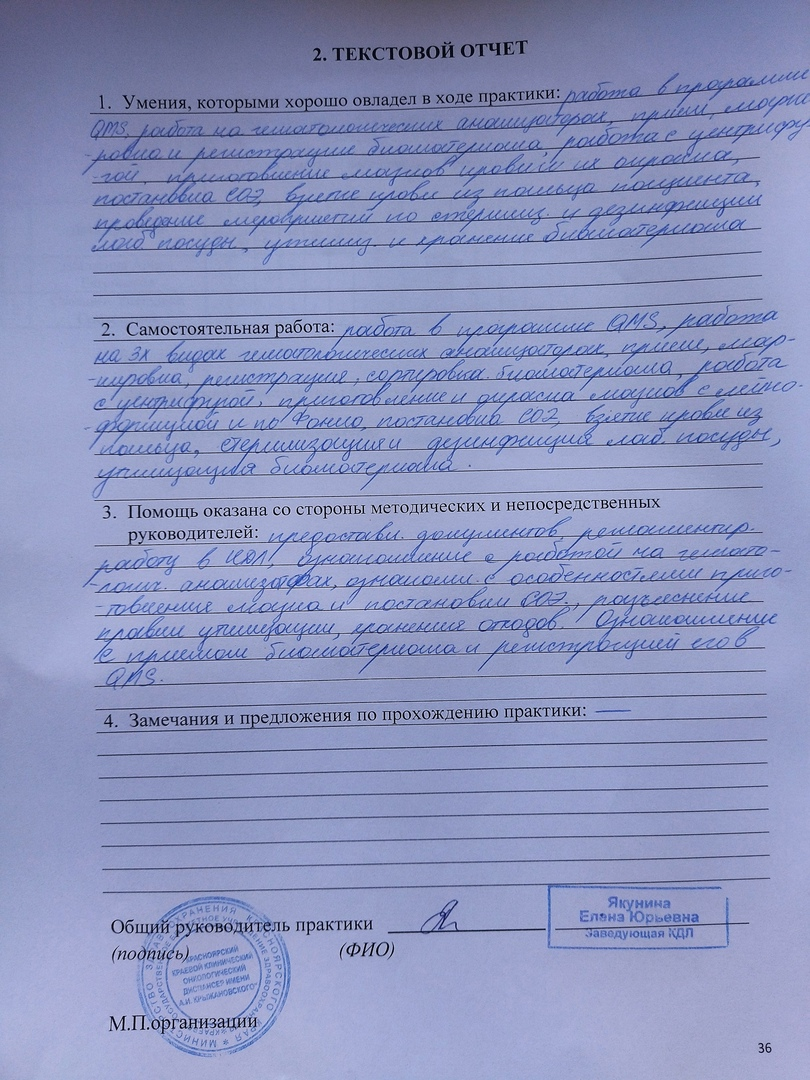 2. ТЕКСТОВОЙ ОТЧЕТ
1. Умения, которыми хорошо овладел в ходе практики: работа в программе
QMS, работа на гематологических анализаторах, прием, марки-
-ровка и регистрация биоматериала, работа с центрифу-
-гой, приготовление мазков крови и их окраска,
постановка СОЭ, взятие крови из пальца пациента,
проведение мероприятий по стерилиз. и дезинфекции
лаб. посуды, утилиз. и хранение биоматериала
2. Самостоятельная работа: работа в программе QMS, работа
на 3х видах гематологических анализаторах, прием, мар-
-кировка, регистрация, сортировка биоматериала, работа
с центрифугой, приготовление и окраска мазков с лейко-
-формулой и по Фонио, постановка СОЭ, взятие крови из
пальца, стерилизация и дезинфекция лаб. посуды,
утилизация биоматериала.
3. Помощь оказана со стороны методических и непосредственных
руководителей: предоставл. документов, регламентир.
работу в КДЛ, ознакомление с работой на гемато-
-логич. анализаторах, ознакомл. с особенностями приго-
-товления мазка и постановки СОЭ, разъяснение
правил утилизации, хранения отходов. Ознакомление
с приемом биоматериала и регистрацией его в
QMS.
4. Замечания и предложения по прохождению практики: —
Якунина
Елена Юрьевна
Заведующая КДЛ
Общий руководитель практики
(подпись) (ФИО)
КРАСНОЯРСКИЙ
КРАЕВОЙ КЛИНИЧЕСКИЙ
ОНКОЛОГИЧЕСКИЙ
ДИСПАНСЕР ИМЕНИ
А.И. КРЫЖАНОВСКОГО
М.П.организации
36